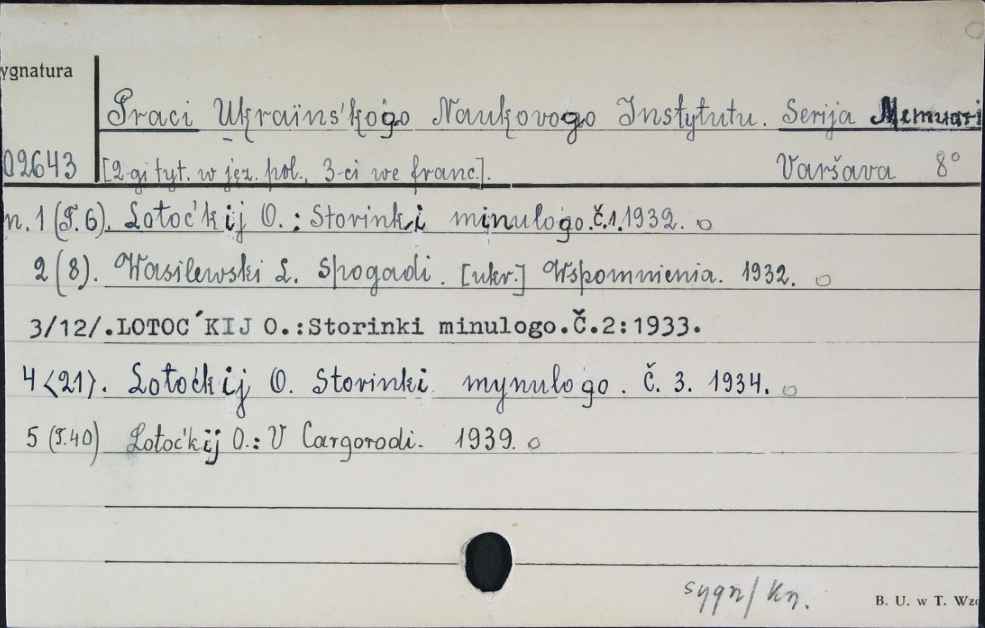 ygnatura
Praci Ukraïns'kogo Naukovogo Instytutu. Serija Memuari
02643 [2-gi tyt. w jęz. pol., 3-ci we franc.]. Varšava 8°
n. 1 (T. 6). Lotoc'kij O.: Storinki minulogo. č.1. 1932.
2 (8). Wasilewski L. Spogadi. [ukr.] Wspomnienia. 1932.
3/12/.LOTOC´KIJ O.:Storinki minulogo.Č.2:1933.
4 <21>. Lotoćkij O. Storinki mynulogo. Č. 3. 1934.
5 (T.40) Lotoc'kij O.: V Cargorodi. 1939.
sygn/kn.
B. U. w T. Wzo